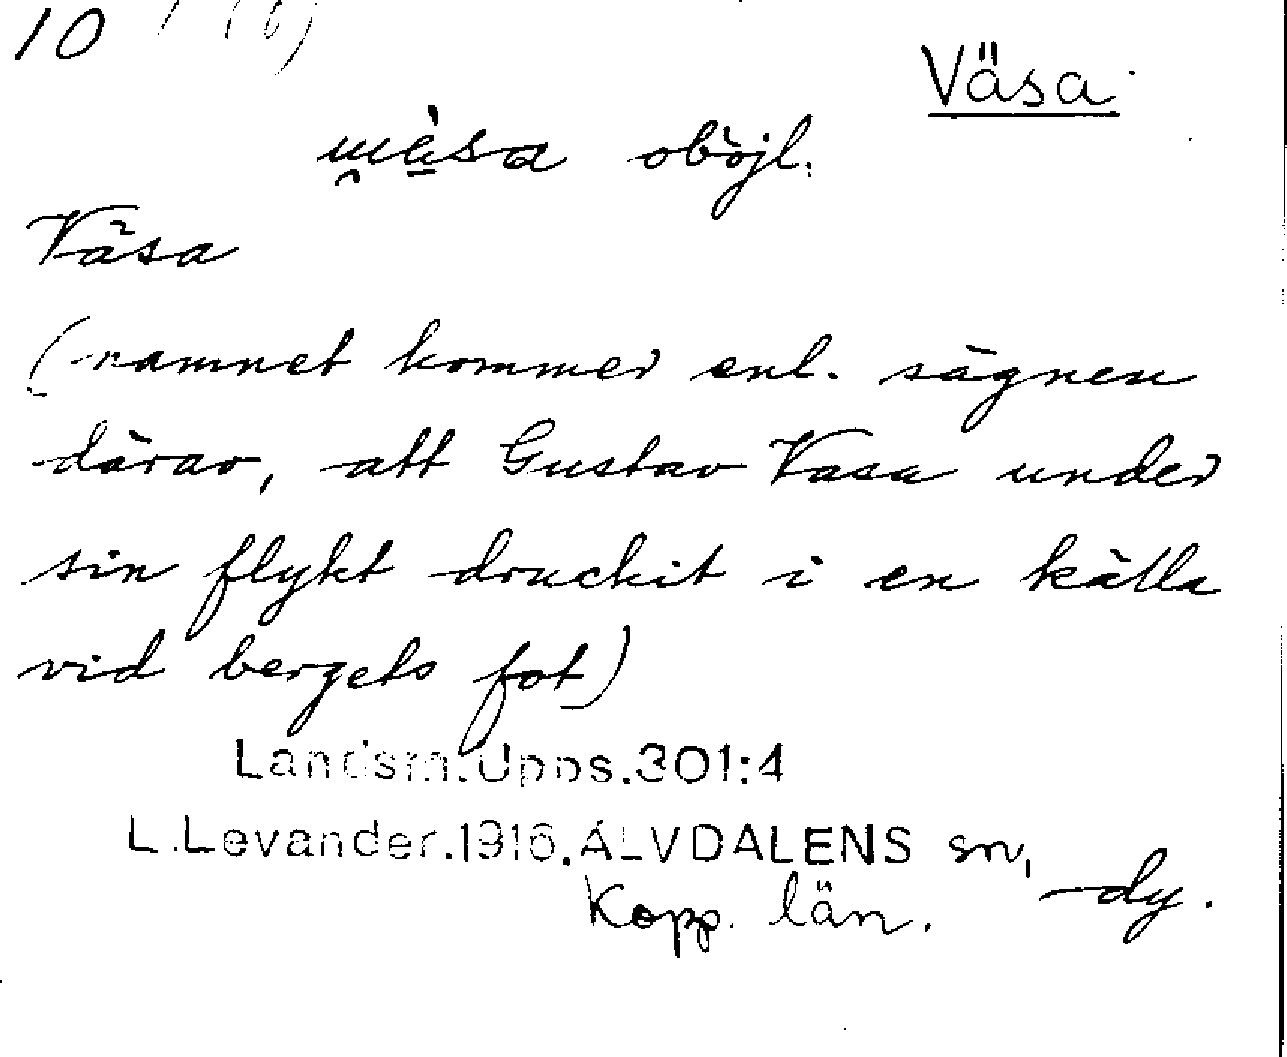 10
Väsa
oböjl.
Väsa
(namnet kommer enl. sägnen
därav, att Gustav Vasa under
sin flykt druckit i en källa
vid bergets fot)
Landsm. Upps. 301:4
L. Levander. 1916. ÄLVDALENS sn,
Kopp. län. dy.